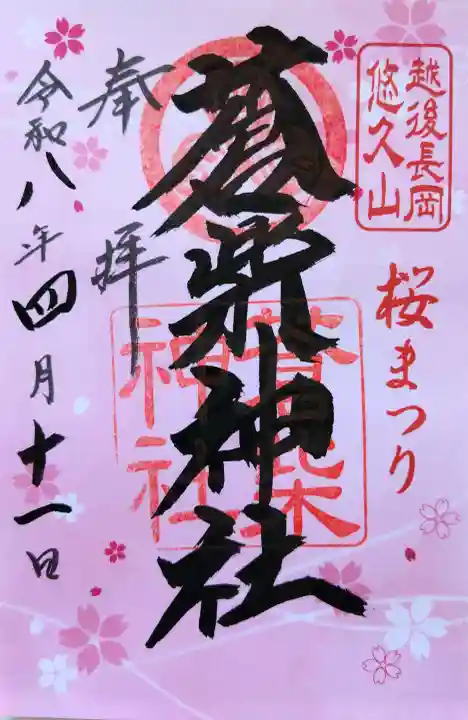 越後長岡
悠久山
桜まつり
蒼柴神社
蒼柴
神社
奉拝
令和八年四月十一日